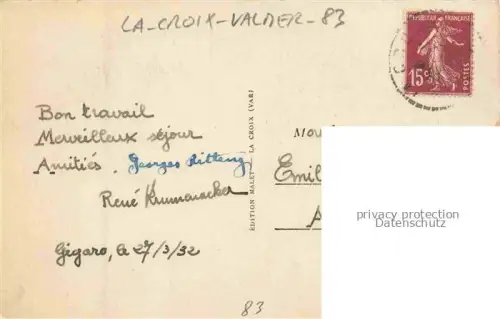 LA-CROIX-VALMER-83
RÉPUBLIQUE FRANÇAISE
15c
POSTES
Bon travail
Merveillaux séjour
Amitiés. Georges
René
Gigaro, le 27/3/32
EDITION MALET - LA CROIX (VAR)
Mou
Emil
A
privacy protection
Datenschutz
83